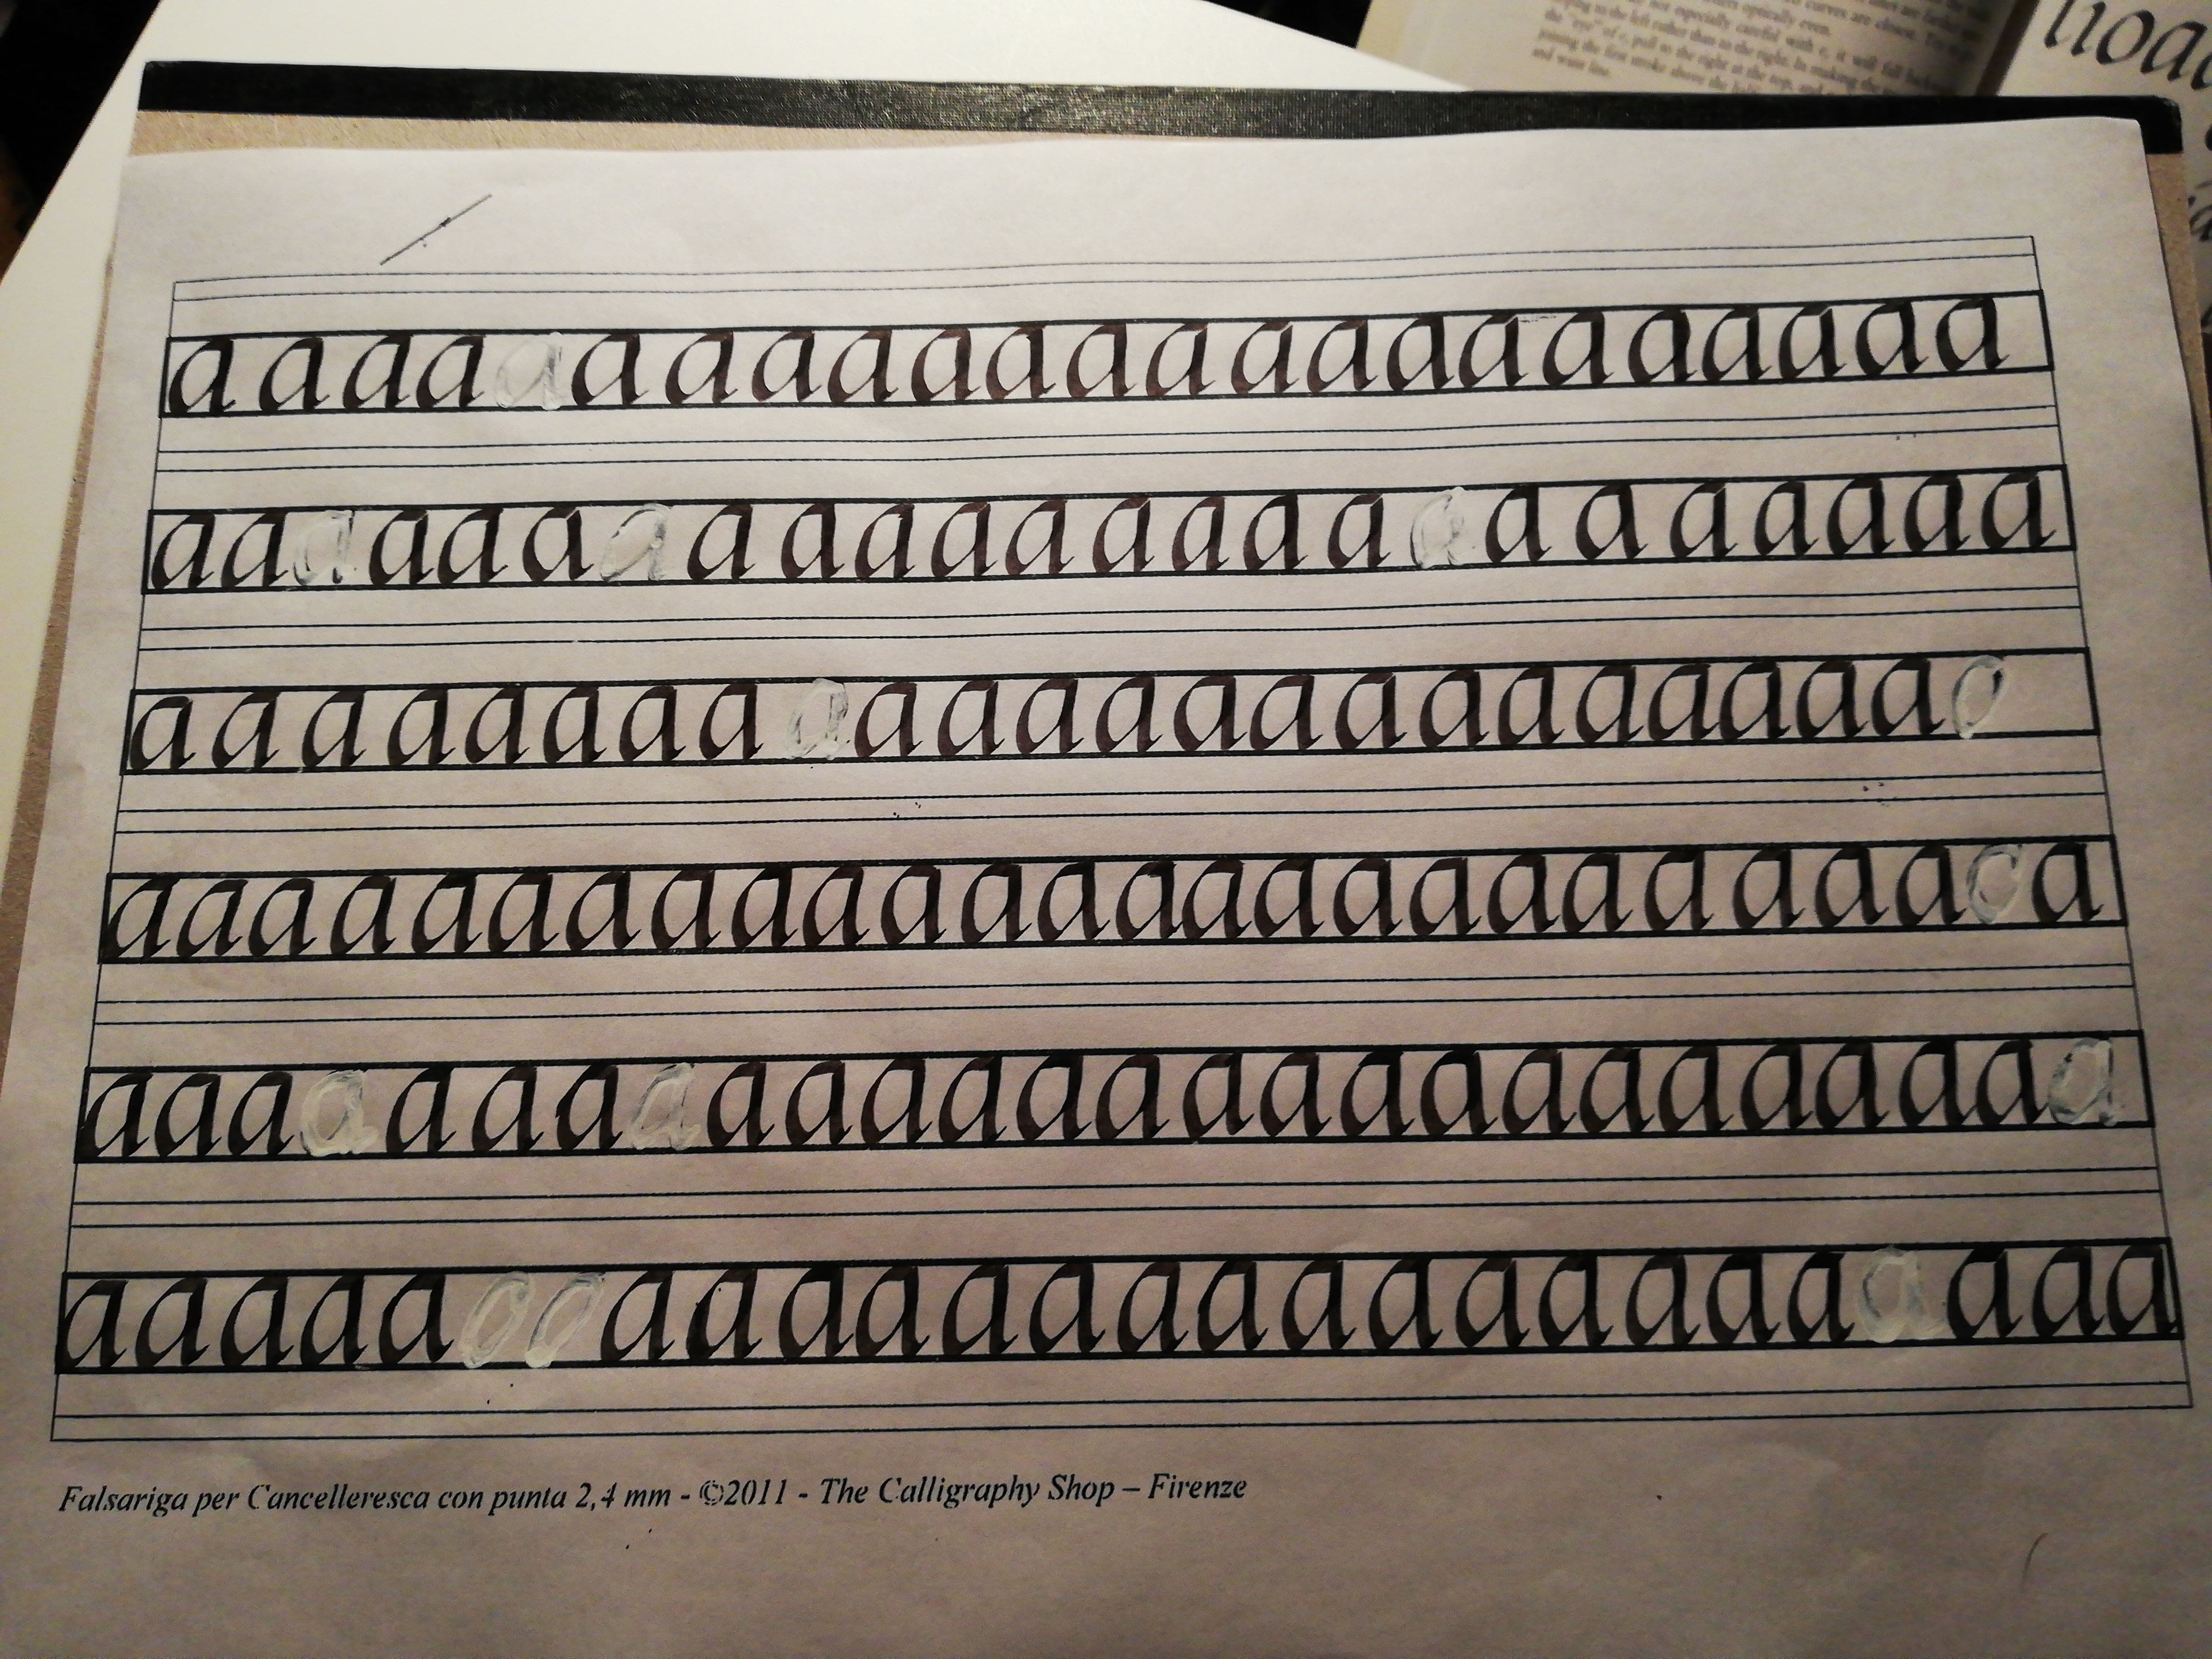 a a a a a a a a a a a a a a a a a a a a a a
a a a a a a a a a a a a a a a a a a a a a
a a a a a a a a a a a a a a a a a a a a a a
a a a a a a a a a a a a a a a a a a a a a a a a a
a a a a a a a a a a a a a a a a a a a a a a a
a a a a a a a a a a a a a a a a a a a a a a a
Falsariga per Cancelleresca con punta 2,4 mm - ©2011 - The Calligraphy Shop – Firenze